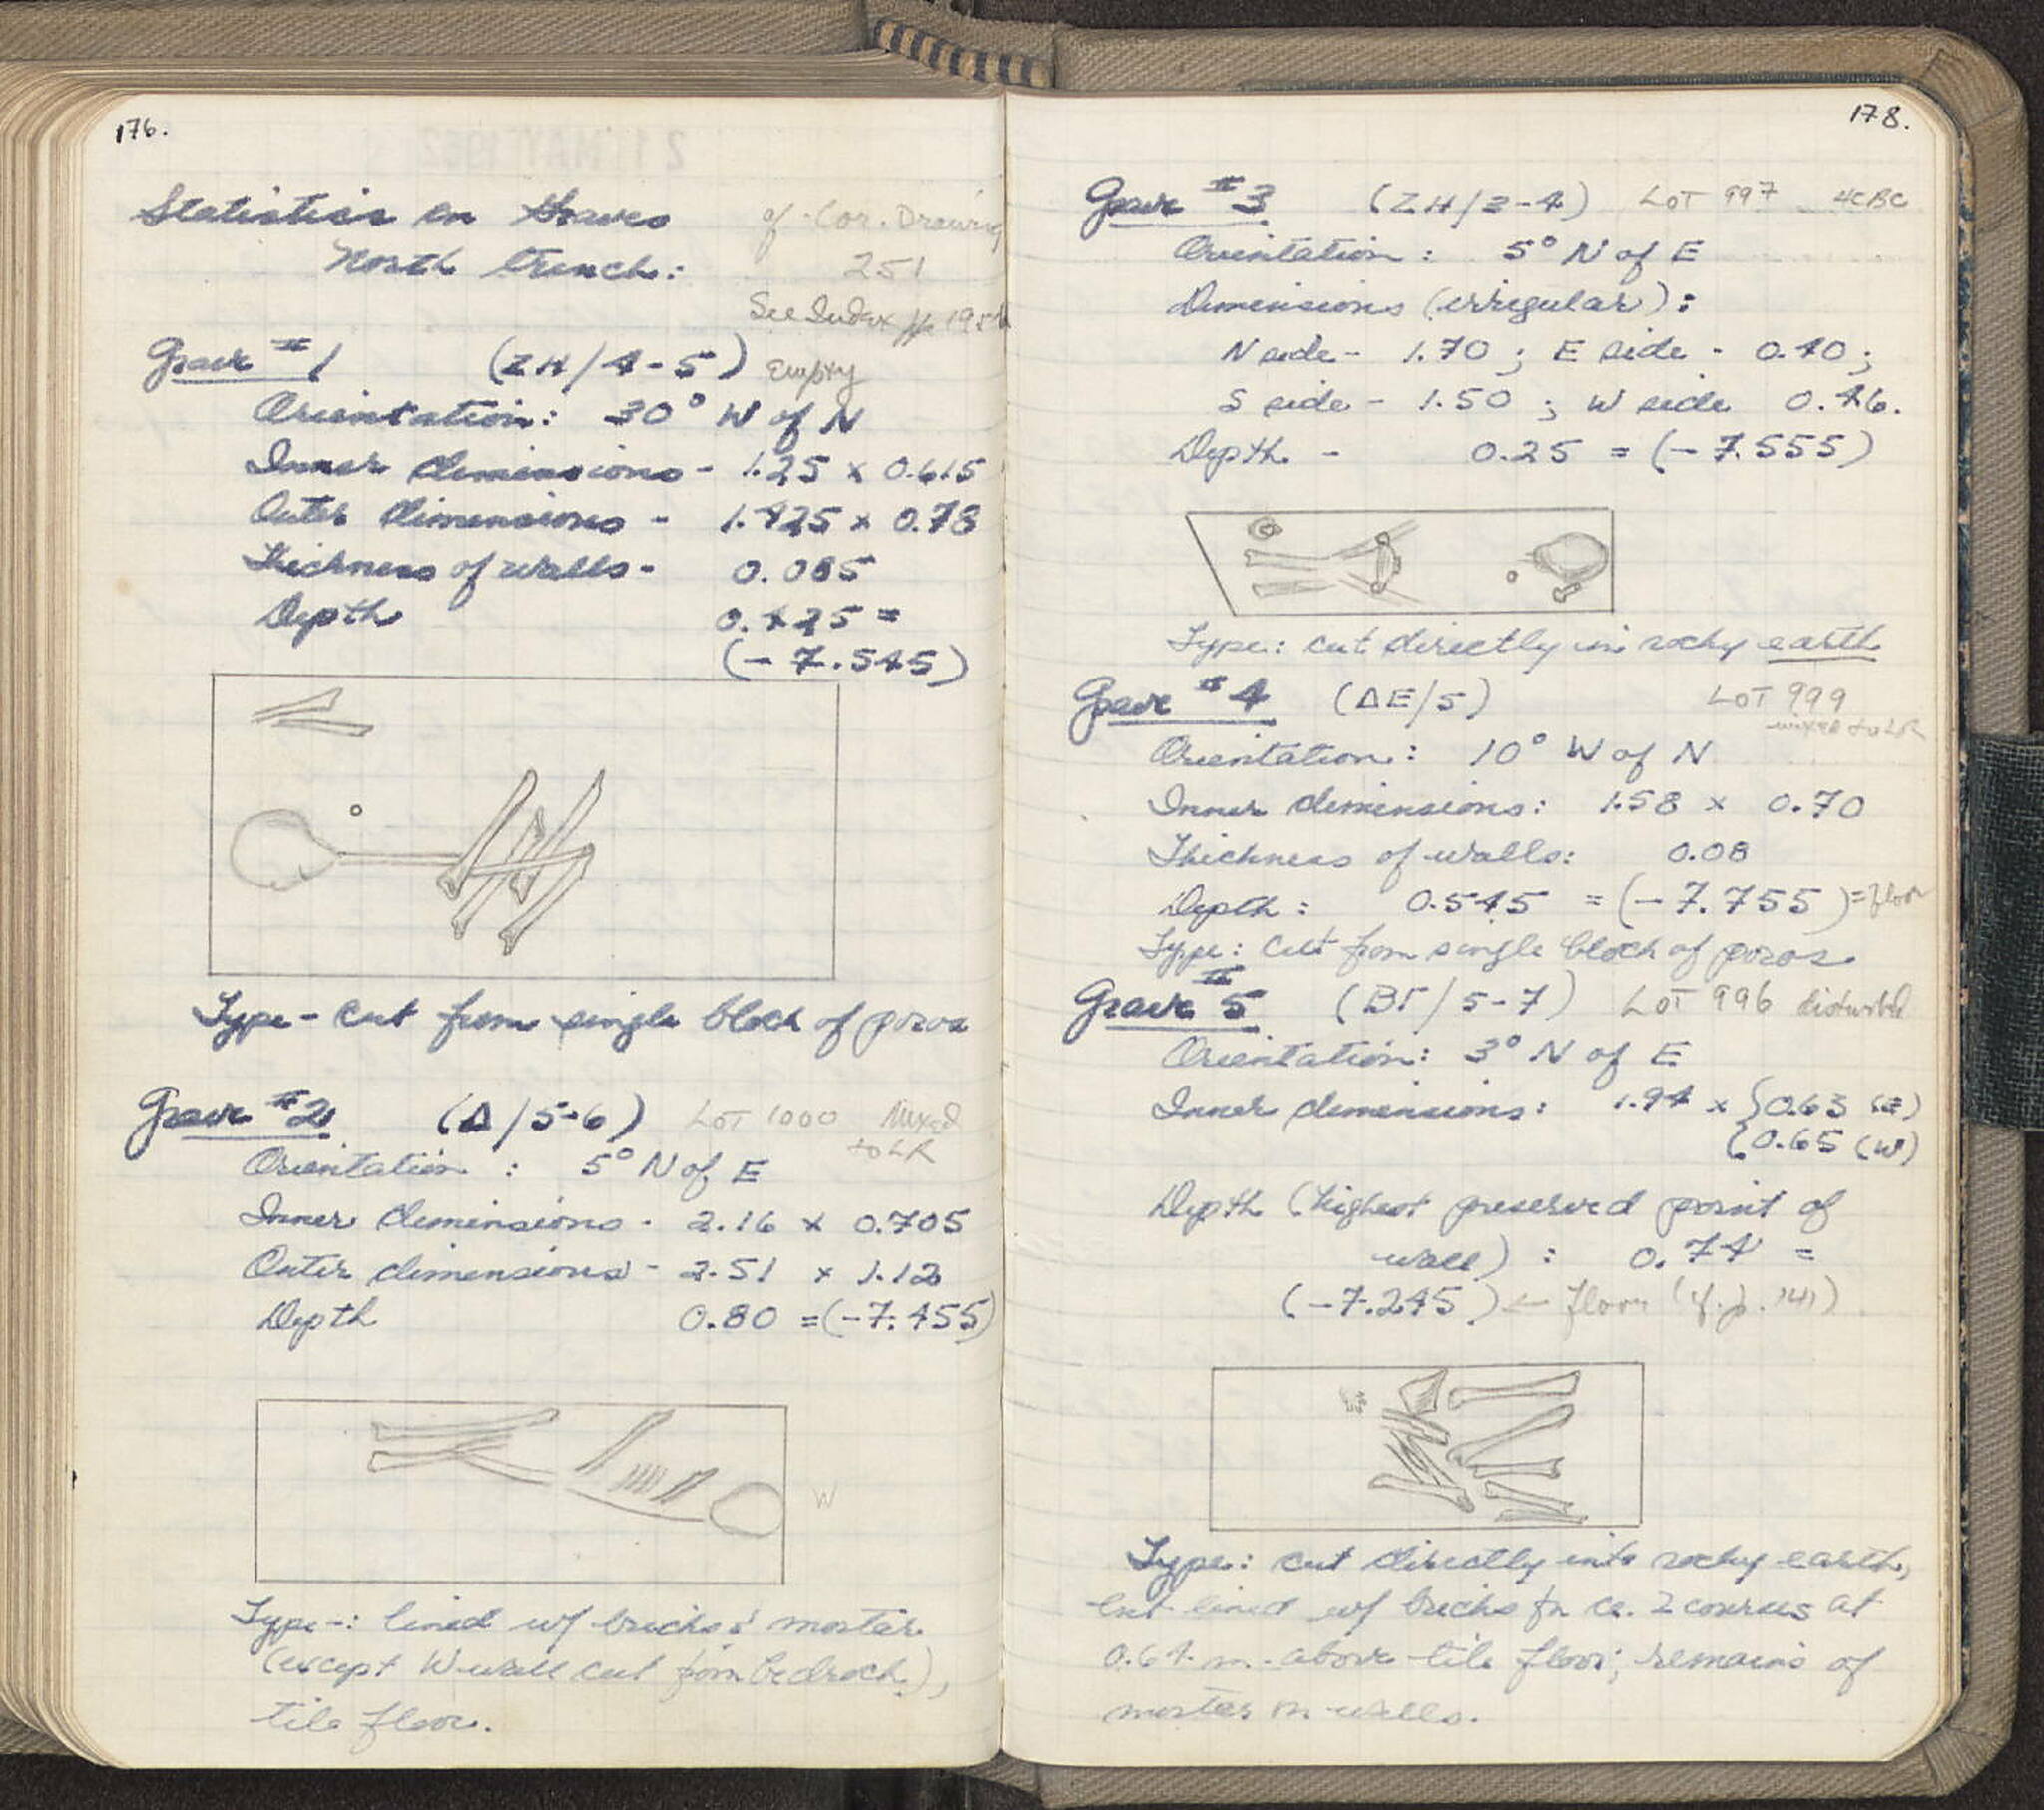 176.
Statistics on Graves
North trench:
cf. Cor. Drawing
251
See Index pp
Grave #1 (ZH/4-5) Empty
Orientation: 30° W of N
Inner dimensions - 1.25 x 0.615
Outer dimensions - 1.425 x 0.78
Thickness of walls - 0.085
Depth 0.425 =
(- 7.545)
Type - Cut from single block of poros
Grave #2 (Δ/5-6) LOT 1000 Mixed
to LR
Orientation : 5° N of E
Inner dimensions - 2.16 x 0.705
Outer dimensions - 2.51 x 1.12
Depth 0.80 = (-7.455)
W
Type -: lined w/ bricks & mortar
(except W wall cut from bedrock),
tile floor.
178.
Grave #3 (ZH/3-4) LOT 997 4CBC
Orientation : 5° N of E
Dimensions (irregular):
N side - 1.70 ; E side - 0.40 ;
S side - 1.50 ; W side 0.46.
Depth - 0.25 = (- 7.555)
Type: cut directly in rocky earth
Grave #4 (ΔE/5) LOT 999
mixed to LR
Orientation: 10° W of N
Inner dimensions: 1.58 x 0.70
Thickness of walls: 0.08
Depth: 0.545 = (- 7.755) = floor
Type: Cut from single block of poros
Grave #5 (BΓ/5-7) LOT 996 disturbed
Orientation: 3° N of E
Inner dimensions: 1.94 x {0.63 (E)
{0.65 (W)
Depth (highest preserved point of
wall) : 0.74 =
(-7.245) ← floor (cf. p. 141)
Type: cut directly into rocky earth,
but lined w/ bricks for ca. 2 courses at
0.64 m. above tile floor; remains of
mortar on walls.